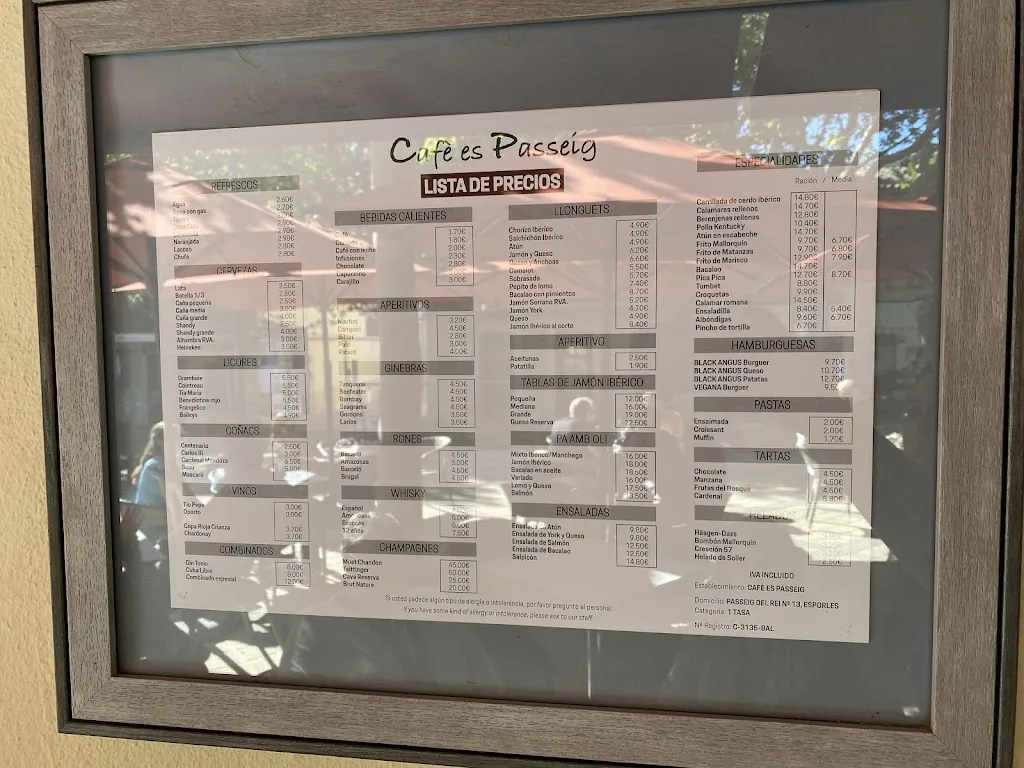 Cafè es Passeig
LISTA DE PRECIOS
REFRESCOS
Agua 2.60€
Agua con gas 2.70€
2.90€
2.90€
Naranjada 2.90€
Laccao 2.80€
Chufa 2.80€
CERVEZAS
Lata 2.50€
Botella 1/3 2.80€
Caña pequeña 2.50€
Caña media 3.80€
Caña grande 4.00€
Shandy 2.50€
Shandy grande 4.00€
Alhambra RVA. 3.00€
Heineken 3.00€
LICORES
Grambuie 5.50€
Cointreau 5.50€
Tia Maria 5.00€
Benedictine rojo 5.50€
Frangelico 4.50€
Baileys 4.90€
COÑACS
Centenario 2.50€
Carlos III 3.00€
Cardenal Mendoza 4.50€
Suau 5.00€
Mascaró 4.50€
VINOS
Tio Pepe 3.00€
Oporto 3.00€
Copa Rioja Crianza 3.70€
Chardonay 3.70€
COMBINADOS
Gin Tonic 8.00€
Cuba Libre 8.00€
Combinado especial 12.00€
BEBIDAS CALIENTES
Café 1.70€
1.80€
Café con leche 2.00€
Infusiones 2.30€
Chocolate 2.80€
Capuccino
Carajillo 3.00€
APERITIVOS
Martini 3.20€
Campari 4.50€
Bitter 2.80€
Palo 3.00€
Ricard 4.00€
GINEBRAS
Tanqueray 4.50€
Beefeater 4.50€
Bombay 4.50€
Seagrams 4.50€
Gordons 3.50€
Larios 3.50€
RONES
Bacardi 4.50€
Amazonas 3.00€
Barceló 4.50€
Brugal 4.50€
WHISKY
Español
Americano 5.00€
Escoces 5.00€
12 años 7.50€
CHAMPAGNES
Moet Chandon 45.00€
Taittinger 50.00€
Cava Reserva 25.00€
Brut Nature 20.00€
LLONGUETS
Chorizo Ibérico 4.90€
Salchichón Ibérico 4.90€
Atún 4.90€
Jamón y Queso 6.20€
Queso y Anchoas 6.60€
Camaiot 5.50€
Sobrasada 5.70€
Pepito de lomo 7.40€
Bacalao con pimientos 8.70€
Jamón Serrano RVA. 5.20€
Jamón York 4.70€
Queso 4.90€
Jamón Ibérico al corte 8.40€
APERITIVO
Aceitunas 2.50€
Patatilla 1.90€
TABLAS DE JAMÓN IBÉRICO
Pequeña 12.00€
Mediana 16.00€
Grande 19.00€
Queso Reserva 12.50€
PA AMB OLI
Mixto Ibérico/Manchego 16.00€
Jamón Ibérico 18.00€
Bacalao en aceite 18.50€
Variado 16.00€
Lomo y Queso 17.50€
Salmón
ENSALADAS
Ensalada de Atún 9.80€
Ensalada de York y Queso 9.80€
Ensalada de Salmón 12.50€
Ensalada de Bacalao 12.50€
Salpicón 14.80€
ESPECIALIDADES
Ración / Media
Carrillada de cerdo ibérico 14.80€
Calamares rellenos 14.70€
Berenjenas rellenas 12.80€
Pollo Kentucky 10.40€
Atún en escabeche 14.70€
Frito Mallorquín 9.70€ 6.70€
Frito de Matanzas 9.70€ 6.80€
Frito de Marisco 12.90€ 7.90€
Bacalao 14.70€
Pica Pica 12.70€ 8.70€
Tumbet 8.80€
Croquetas 9.90€
Calamar romana 14.50€
Ensaladilla 8.40€ 5.40€
Albóndigas 9.60€ 6.70€
Pincho de tortilla 6.70€
HAMBURGUESAS
BLACK ANGUS Burguer 9.70€
BLACK ANGUS Queso 10.70€
BLACK ANGUS Patatas 12.70€
VEGANA Burguer
PASTAS
Ensaimada 2.00€
Croissant 2.00€
Muffin 1.70€
TARTAS
Chocolate 4.50€
Manzana 4.50€
Frutas del Bosque 4.50€
Cardenal
HELADOS
Häagen-Dazs
Bombón Mallorquin
Creación 57
Helado de Soller
IVA INCLUIDO
Establecimiento: CAFÈ ES PASSEIG
Domicilio: PASSEIG DEL REI Nº 13, ESPORLES
Categoria: 1 TASA
Nº Registro: C-3135-BAL
Si usted padece algún tipo de alergia o intolerencia, por favor pregunte al personal..
If you have some kind of allergy or intolerence, please ask to our staff.